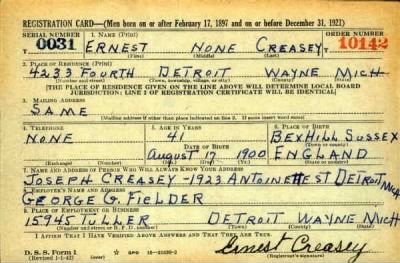 REGISTRATION CARD—(Men born on or after February 17, 1897 and on or before December 31, 1921)
SERIAL NUMBER 1. NAME (Print) ORDER NUMBER
0031 ERNEST NONE CREASEY 10142
(First) (Middle) (Last)
2. PLACE OF RESIDENCE (Print)
4233 FOURTH DETROIT WAYNE MICH
(Number and street) (Town, township, village, or city) (County) (State)
[THE PLACE OF RESIDENCE GIVEN ON THE LINE ABOVE WILL DETERMINE LOCAL BOARD
JURISDICTION; LINE 2 OF REGISTRATION CERTIFICATE WILL BE IDENTICAL]
3. MAILING ADDRESS
SAME
[Mailing address if other than place indicated on line 2. If same insert word same]
4. TELEPHONE 5. AGE IN YEARS 6. PLACE OF BIRTH
NONE 41 BEXHILL SUSSEX
DATE OF BIRTH (Town or county)
August 17 1900 ENGLAND
(Exchange) (Number) (Mo.) (Day) (Yr.) (State or country)
7. NAME AND ADDRESS OF PERSON WHO WILL ALWAYS KNOW YOUR ADDRESS
JOSEPH CREASEY - 1923 ANTOINETTE ST DETROIT MICH
8. EMPLOYER'S NAME AND ADDRESS
GEORGE G. FIELDER
9. PLACE OF EMPLOYMENT OR BUSINESS
15945 TULLER DETROIT WAYNE MICH
(Number and street or R. F. D. number) (Town) (County) (State)
I AFFIRM THAT I HAVE VERIFIED ABOVE ANSWERS AND THAT THEY ARE TRUE.
D. S. S. Form 1
(Revised 1-1-42) GPO Ernest Creasey
(Registrant's signature)